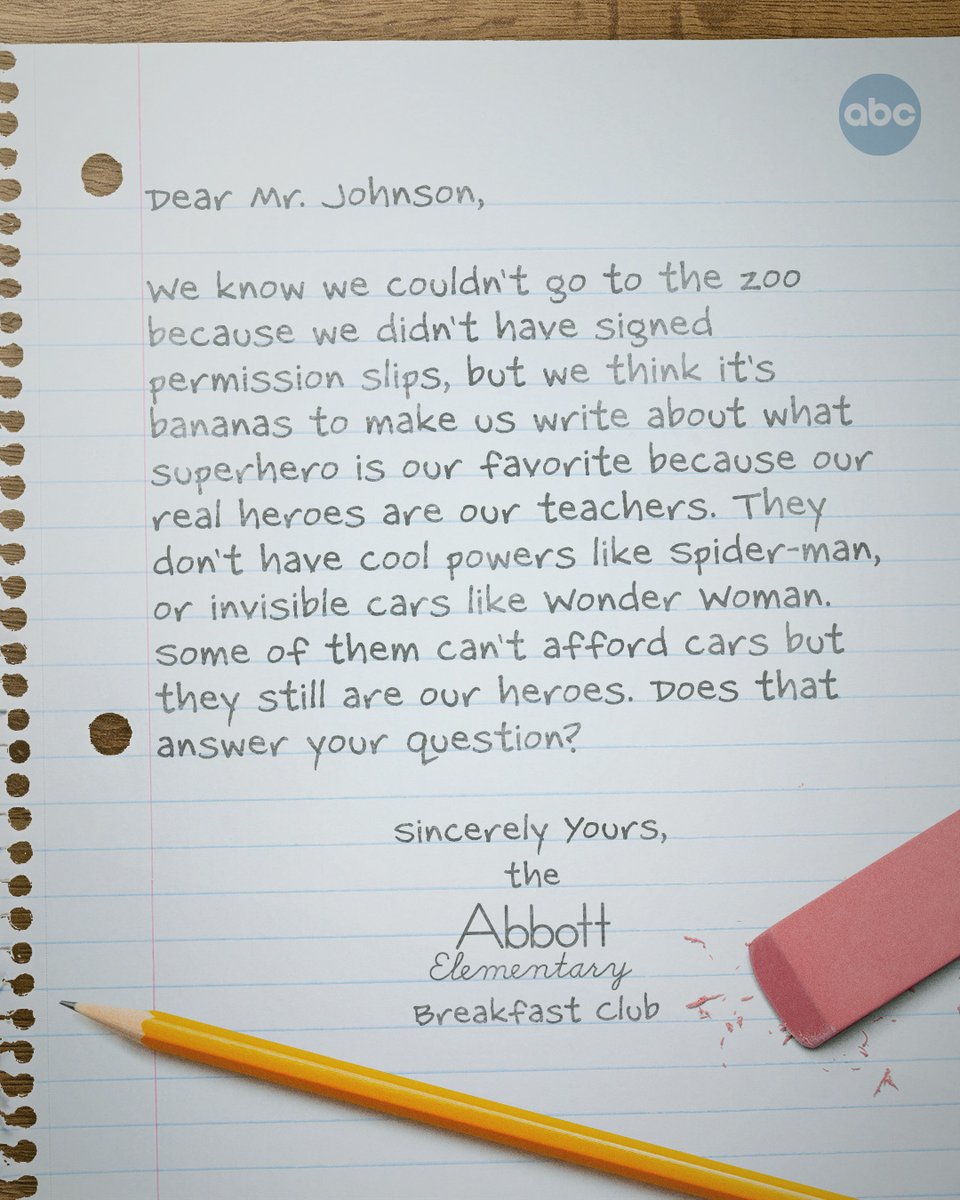 abc
Dear Mr. Johnson,
We know we couldn't go to the zoo
because we didn't have signed
permission slips, but we think it's
bananas to make us write about what
superhero is our favorite because our
real heroes are our teachers. They
don't have cool powers like Spider-man,
or invisible cars like Wonder Woman.
Some of them can't afford cars but
they still are our heroes. Does that
answer your question?
Sincerely Yours,
the
Abbott
Elementary
Breakfast Club